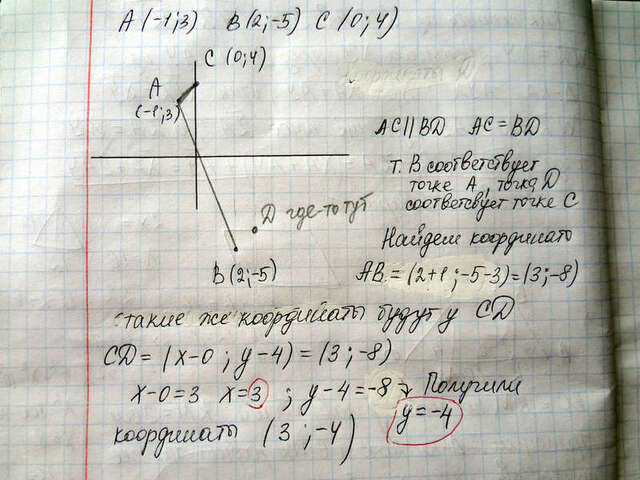 A (-1;3) B(2;-5) C (0;4)
C (0;4)
A
(-1;3)
AC || BD AC = BD
т. В соответствует
точке А, точка D
соответсвует точке С
D где-то тут
Найдем координато
B(2;-5)
AB = (2+1; -5-3)=(3;-8)
такие же координаты будут у CD
CD = (x-0; y-4) = (3;-8)
x-0=3 x=3 ; y-4=-8 Получили
y=-4
координаты (3;-4)